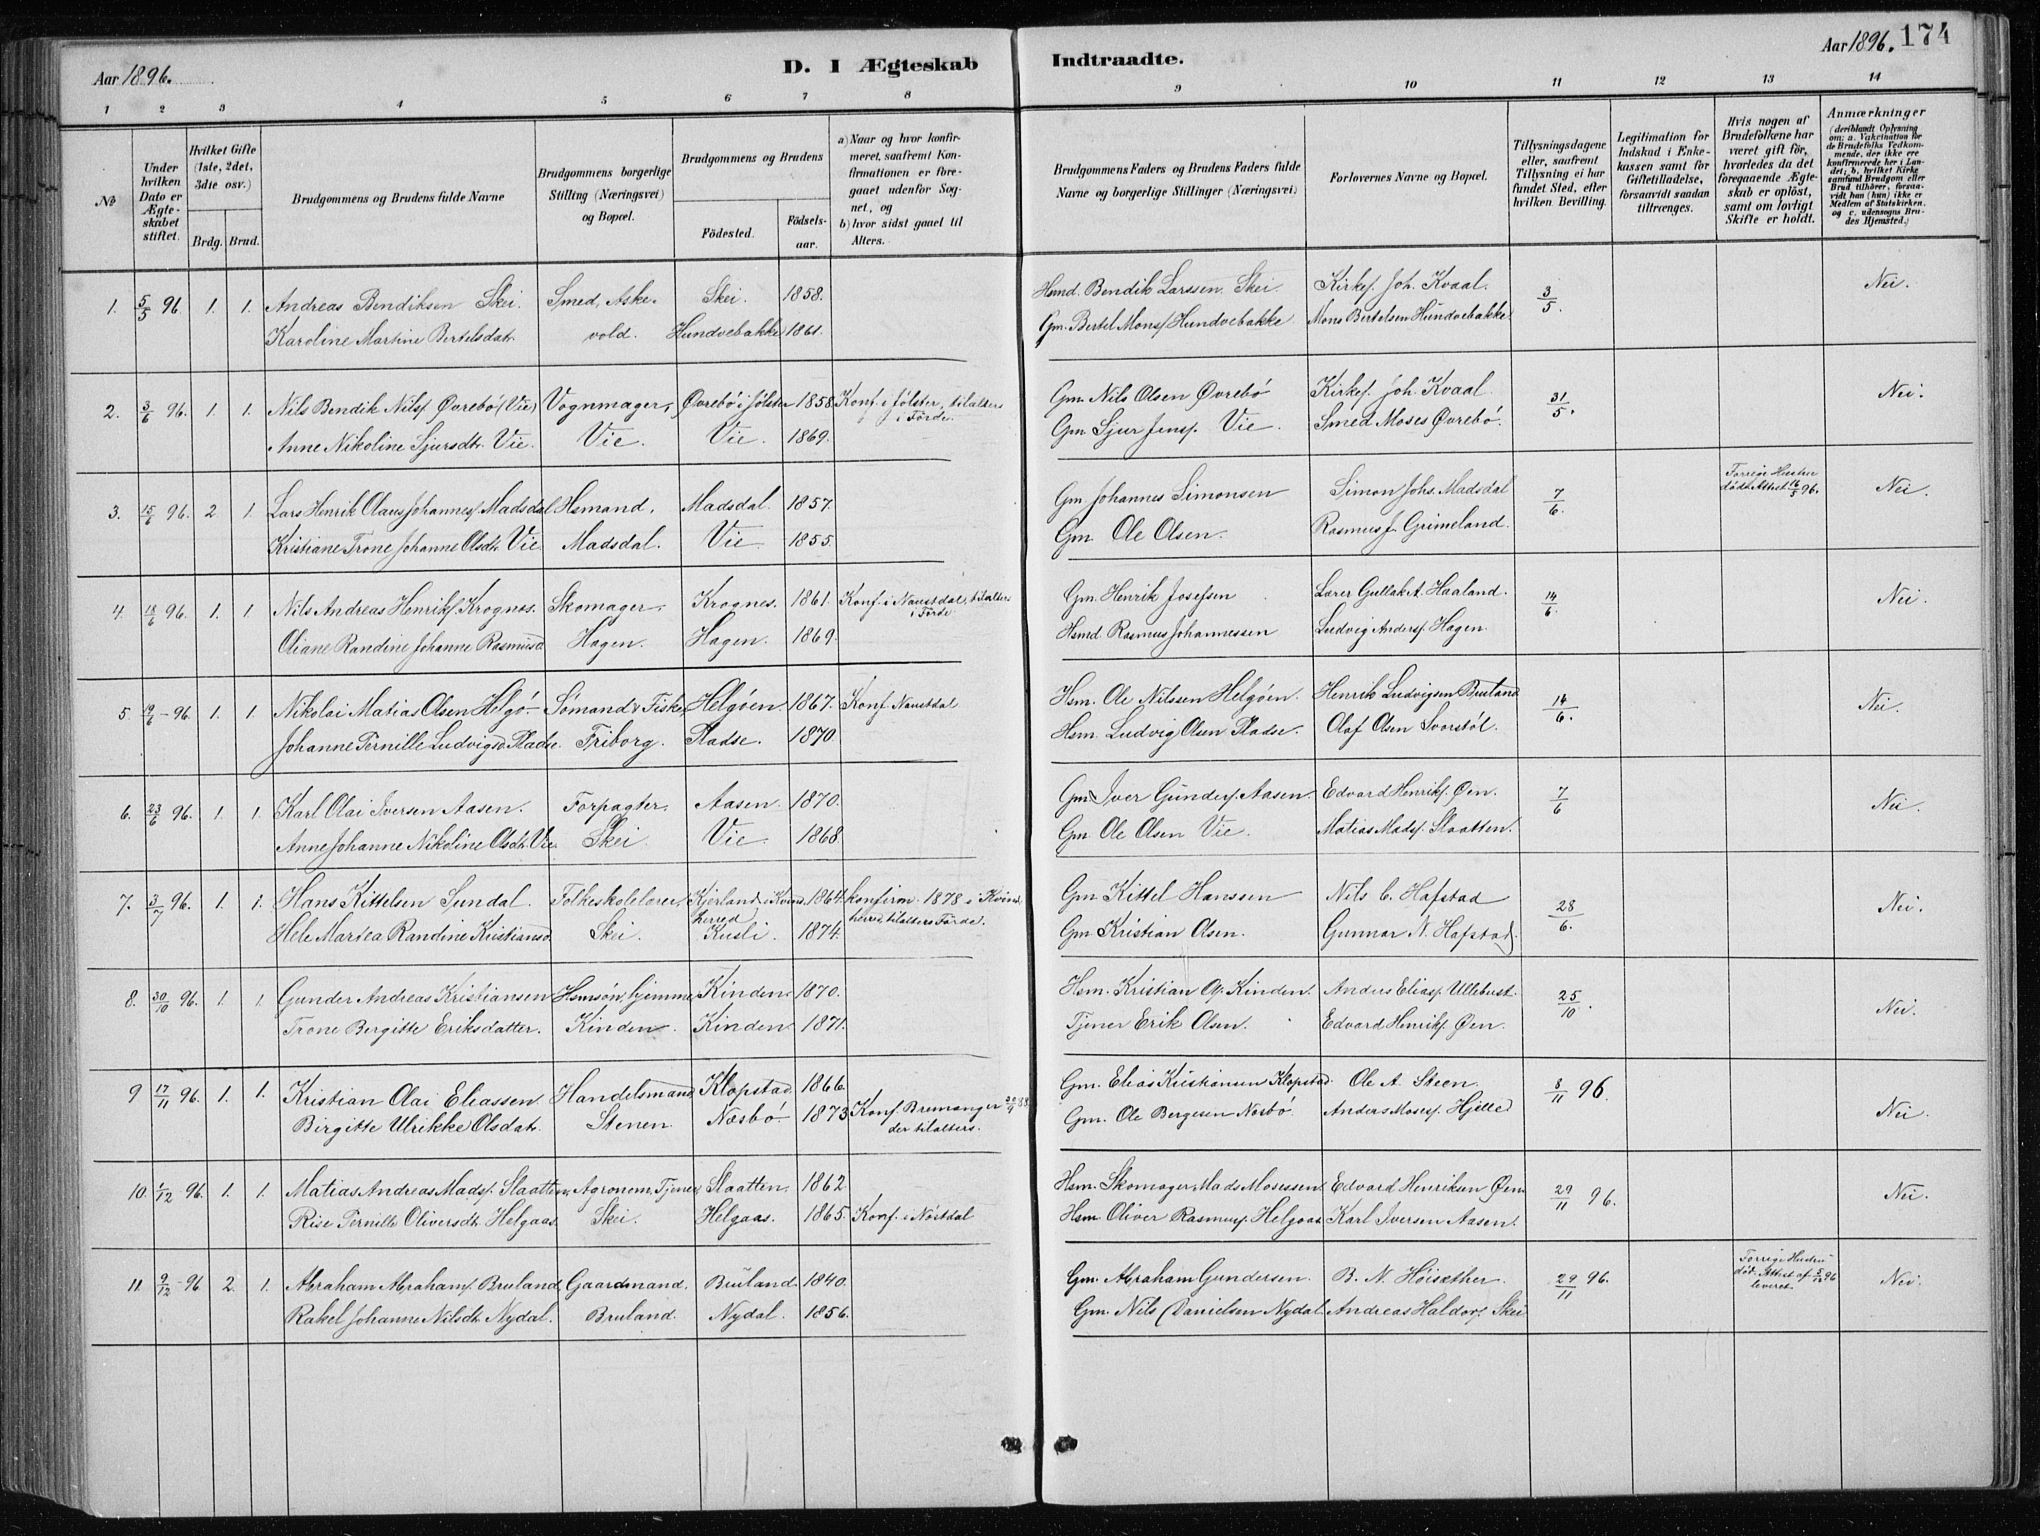 Aar 1896.
D. I Ægteskab Indtraadte.
Aar 1896. 174
1 2 3 4 5 6 7 8 9 10 11 12 13 14
No
Under hvilken Dato er Ægteskabet stiftet.
Hvilket Gifte (1ste, 2det, 3die osv.)
Brdg. Brud.
Brudgommens og Brudens fulde Navne
Brudgommens borgerlige Stilling (Næringsvei) og Bopæl.
Brudgommens og Brudens
Födested. Födselsaar.
a) Naar og hvor konfirmeret, saafremt Konfirmationen er foregaaet udenfor Sognet, og
b) hvor sidst gaaet til Alters.
Brudgommens Faders og Brudens Faders fulde Navne og borgerlige Stillinger (Næringsvei)
Forlovernes Navne og Bopæl.
Tillysningsdagene eller, saafremt Tillysning ei har fundet Sted, efter hvilken Bevilling.
Legitimation for Indskud i Enkekassen samt for Giftetilladelse, forsaavidt saadan tiltrænges.
Hvis nogen af Brudefolkene har været gift før, hvorledes da det foregaaende Ægteskab er oplöst, samt om lovligt Skifte er holdt.
Anmærkninger
(deriblandt Oplysning om: a. Vakcination for de Brudefolks Vedkommende, der ikke ere konfirmerede her i Landet; b. hvilket Kirkesamfund Brudgom eller Brud tilhörer, forsaavidt han (hun) ikke er Medlem af Statskirken, og c. udensogns Brudes Hjemsted.)
1. 5/5 96. 1. 1. Andreas Bendiksen Skei. Smed, Aske- Skei. 1858. Hsmd. Bendik Larssen Skei Kirkes. Joh. Kvaal. 3/5. Nei.
Karoline Martine Bertelsdatr. vold. Hundvebakke 1861. Gm. Bertel Mons. Hundvebakke Mons Bertelsen Hundvebakke
2. 3/6 96. 1. 1. Nils Bendik Nils. Øvrebö (Vie) Vognmager, Øvrebö i Jölster 1858. Konf. i Jölster, tilalters i Förde Gm. Nils Olsen Øvrebö Kirkes. Joh. Kvaal. 31/5. Nei.
Anne Nikoline Sjursdtr. Vie. Vie. Vie. 1869. Gm. Sjur Jens. Vie. Smed Moses Øvrebö.
3. 15/6 96. 2 1. Lars Henrik Olaus Johannes. Madsdal Hsmand, Madsdal. 1857. Gm Johannes Simonsen Simon Johs. Madsdal 7/6. Forrige Hustru död. Attest 16/5 96. Nei.
Kristiane Trone Johanne Olsdtr. Vie Madsdal. Vie 1855. Gm. Ole Olsen. Rasmus J. Grimeland.
4. 18/6 96. 1. 1. Nils Andreas Henriks. Krognes. Skomager, Krognes. 1861. Konf. i Naustdal, tilalters i Förde Gm. Henrik Josefsen Lærer Gullak A. Haaland. 14/6. Nei.
Oliane Randine Johanne Rasmusd. Hagen. Hagen. 1869. Hsmd. Rasmus Johannessen Ludvig Anders. Hagen
5. 19/6 - 96. 1. 1. Nikolai Matias Olsen Helgö- Sömand & Fisker Helgöen. 1867. Konf. Naustdal Hsm. Ole Nilssen Helgöen. Henrik Ludvigsen Bruland 14/6. Nei.
Johanne Pernille Ludvigsd. Pladse. Friborg. Pladse. 1870. Hsm. Ludvig Olsen Pladse. Olaf Olsen Svorstöl.
6. 23/6 96. 1. 1. Karl Olai Iversen Aasen. Forpagter. Aasen. 1870. Gm. Iver Gunders. Aasen. Edvard Henriks. Øen. 7/6 Nei.
Anne Johanne Nikoline Olsdtr. Vie. Skei. Vie. 1868. Gm. Ole Olsen Vie. Matias Mads. Slaatten.
7. 3/7 96. 1. 1. Hans Kittelsen Sundal. Folkeskolelærer, Kjerland i Kvinnherred 1864. Konfirm. 1878 i Kvinnherred, tilalters Förde. Gm Kittel Hanssen Nils C. Hafstad 28/6. Nei.
Hele Martea Randine Kristiansd. Skei. Kusli. 1874. Gm Kristian Olsen. Gunnar N. Hafstad.
8. 30/10 96. 1. 1. Gunder Andreas Kristiansen Hsmsön, hjemme Kinden. 1870. Hsm. Kristian Ol. Kinden. Anders Elias. Ullebust. 25/10. Nei.
Trone Bergitte Eriksdatter. Kinden. Kinden. 1871. Tjener Erik Olsen. Edvard Henriks. Øen.
9 17/11 96. 1. 1. Kristian Olai Eliassen Handelsmand Klopstad. 1866. Gm. Elias Kristiansen Klopstad. Ole A. Steen. 8/11 96. Nei.
Birgitte Ulrikke Olsdatr. Stenen. Næsbö- 1873 Konf. Bremanger 30/9 88. der tilalters. Gm. Ole Bergesen Næsbö. Anders Moses. Hjelle
10. 1/12 96. 1. 1. Matias Andreas Mads. Slaatten, Agronom, Tjener, Slaatten. 1862. Hsm. Skomager, Mads Mosessen. Edvard Henriksen Øen 29/11 96. Nei.
Rise Pernille Oliversdtr. Helgaas. Skei. Helgaas. 1865. Konf. i Nöstdal Hsm. Oliver Rasmus. Helgaas Karl Iversen Aasen.
11. 9/12 - 96 2. 1. Abraham Abrahams. Bruland, Gaardmand. Bruland 1840. Gm. Abraham Gundersen. B. N. Höisæther. 29/11 96. Forrige Hustru död. Attest af 5/12 96 leveret. Nei.
Rakel Johanne Nilsdtr. Nydal. Bruland. Nydal. 1856. Gm. Nils Danielsen Nydal. Andreas Haldors. Skei